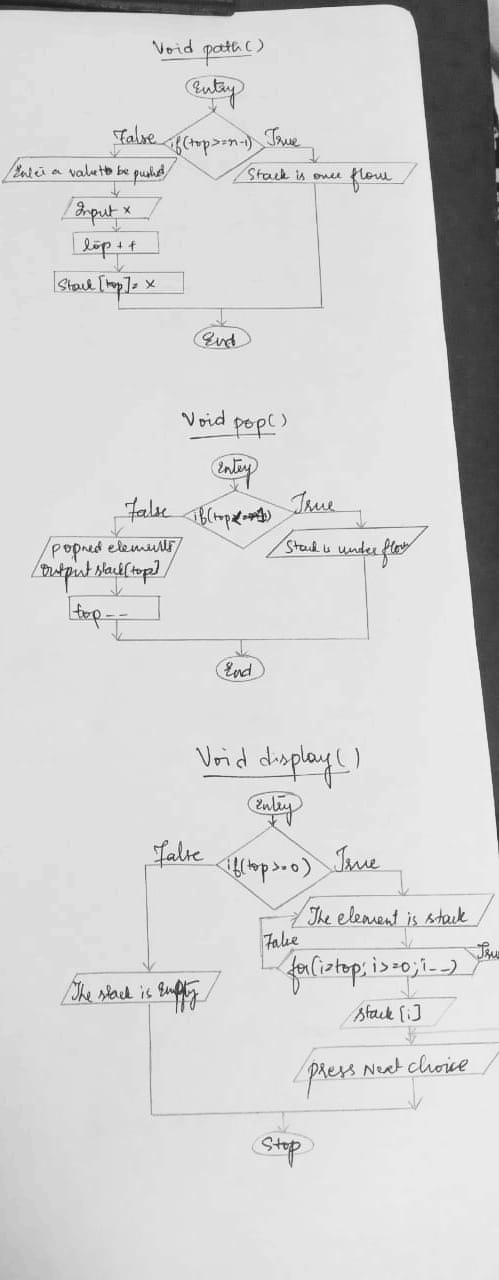 Void path()
Entry
False if(top>=n-1) True
Enter a value to be pushed
Stack is once flow
Input x
top++
Stack[top]= x
End
Void pop()
Entry
False True
popped elements
output stack[top]
Stack is under flow
top--
End
Void display()
Entry
False if(top>=0) True
The element is stack
False
True
for(i=top; i>=0; i--)
The stack is Empty
stack[i]
press Next choice
Stop